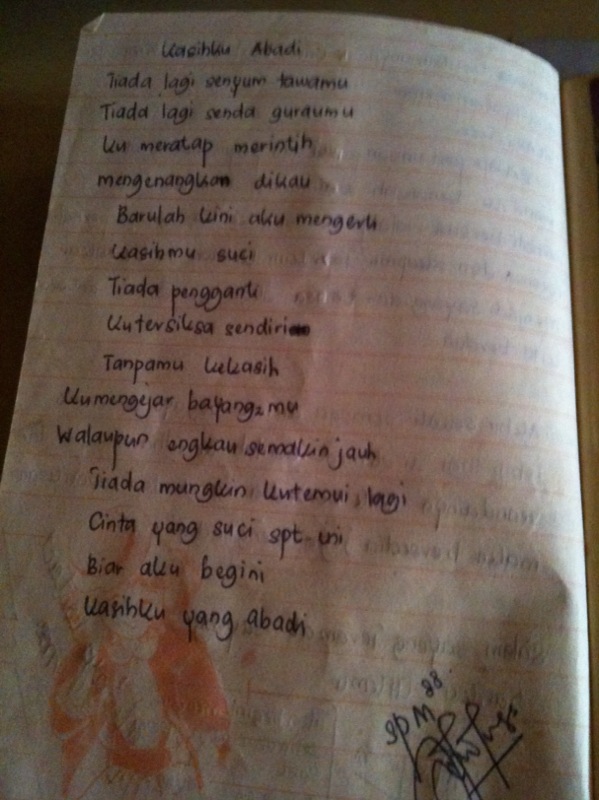 Kasihku Abadi
Tiada lagi senyum tawamu
Tiada lagi senda guraumu
Ku meratap merintih
mengenangkan dikau
Barulah kini aku mengerti
Kasihmu suci
Tiada pengganti
Kutersiksa sendiri
Tanpamu kekasih
Kumengejar bayang2mu
Walaupun engkau semakin jauh
Tiada mungkin kutemui lagi
Cinta yang suci spt ini
Biar aku begini
Kasihku yang abadi
SPM 88